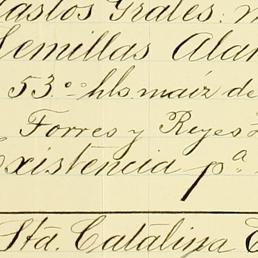 Gastos Grales.
Semillas
53.º hls. maíz de
Torres y Reyes
Existencia pª
Sta. Catalina